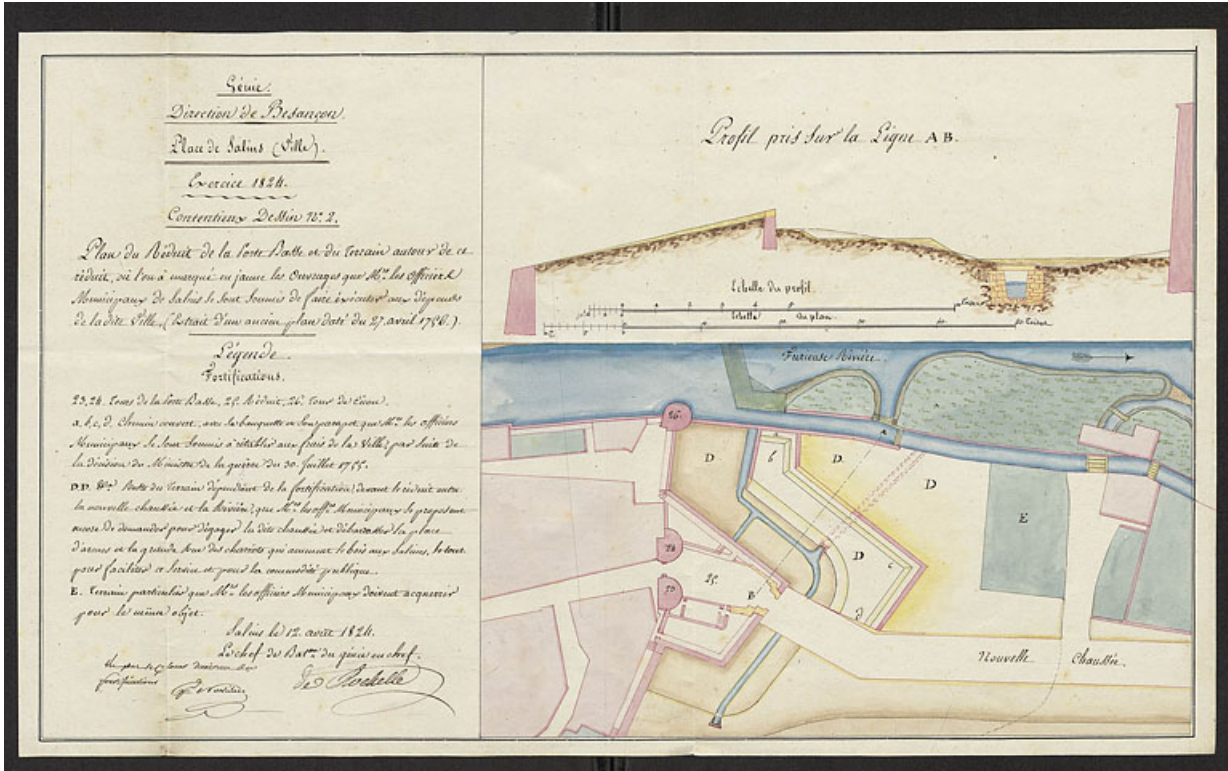 Génie.
Direction de Besançon.
Place de Salins (Ville).
Exercice 1824.
Contentieux Dessin N.° 2.
Plan du Réduit de la Porte Basse et du Terrain autour de ce
réduit, où l'on a marqué en jaune les Ouvrages que M.rs les Officiers
Municipaux de Salins se sont soumis de faire exécuter aux dépends
de la dite Ville. (Extrait d'un ancien plan daté du 27. avril 1756.)
Légende
Fortifications.
23, 24. Tours de la Porte Basse, 25. Réduit, 26. Tour de
a, b, c, d. Chemin couvert, avec sa banquette et son parapet que M.rs les officiers
Municipaux se sont soumis à rétablir aux frais de la Ville, par suite de
la décision du Ministre de la guerre du 30. Juillet 1755.
DD. &.a Partie du Terrain dépendant de la fortification, devant le réduit entre
la nouvelle chaussée et la Rivière, que M.rs les off.rs Municipaux se proposent
encore de demander pour dégager la dite chaussée et débarrasser la place
d'armes et la grande rue des chariots qui amènent le bois aux Salines, le tout
pour faciliter ce Service et pour la commodité publique.
E. Terrain particulier que M.rs les officiers Municipaux doivent acquerrir
pour le même objet.
Salins le 12. avril 1824.
Le chef de Bat.on du génie en chef.
Vu par le
fortifications
De Rochelle
Profil pris sur la Ligne AB.
Echelle du profil.
Echelle du plan.
Furieuse Rivière.
26.
24
23
25.
D
b
D.
D
D
c
d
A
B
E
Nouvelle Chaussée.